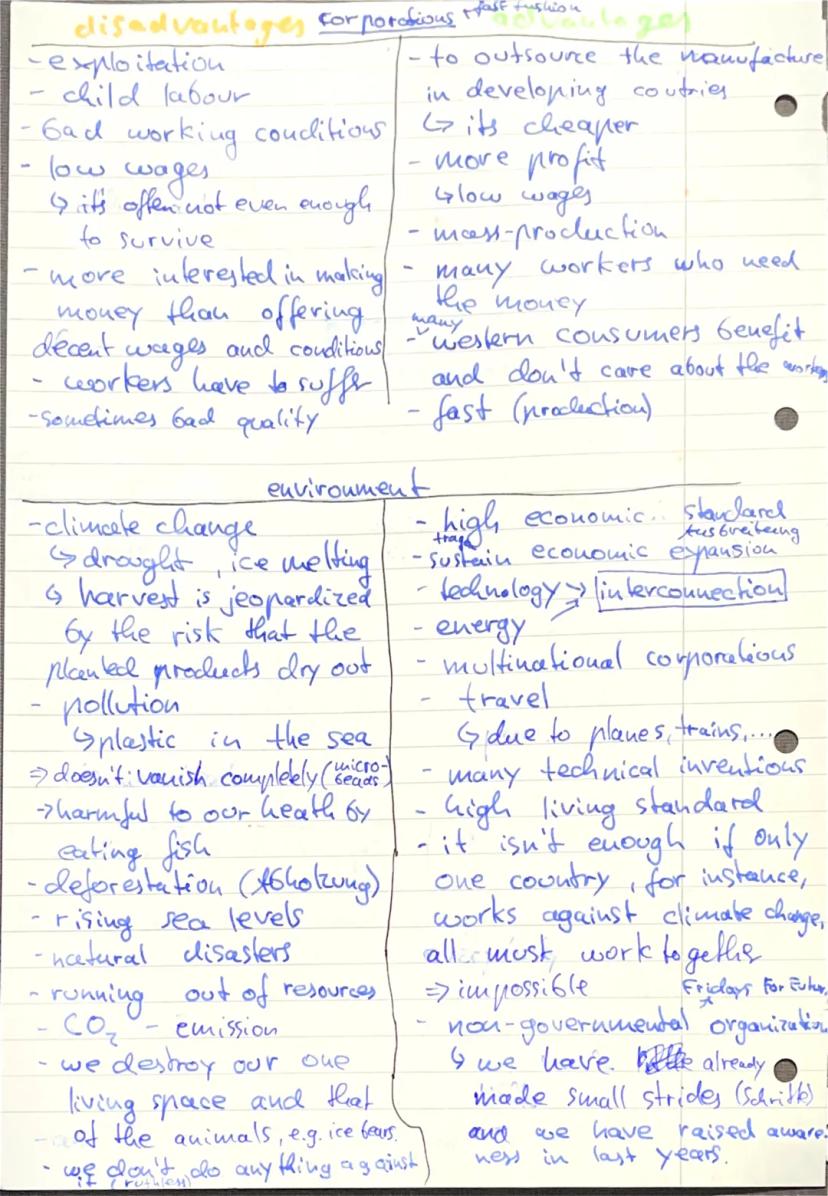 disadvantages corporations + fast fashion advantages
- exploitation
- child labour
- bad working conditions
- low wages
↳ it's often not even enough
to survive
- more interested in making
money than offering
decent wages and conditions
- workers have to suffer
- sometimes bad quality
- to outsource the manufacture
in developing coutries
↳ its cheaper
- more profit
↳ low wages
- mass-production
- many workers who need
the money
many
- western consumers benefit
and don't care about the workers
- fast (production)
environment
- climate change
↳ drought, ice melting
↳ harvest is jeopardized
by the risk that the
planted products dry out
- pollution
↳ plastic in the sea
⇒ doesn't vanish completely (micro-
beads)
→ harmful to our heath by
eating fish
- deforestation (Abholzung)
- rising sea levels
- natural disasters
- running out of resources
- CO₂ - emission
- we destroy our one
living space and that
of the animals, e.g. ice bears.
- we don't do anything against
it (ruthless)
- high economic standard
Ausbreitung
- sustain economic expansion
- technology → interconnection
- energy
- multinational corporations
- travel
↳ due to planes, trains,...
- many technical inventions
- high living standard
- it isn't enough if only
one country, for instance,
works against climate change,
all must work together
⇒ impossible
Fridays For Future
- non-governmental organization
↳ we have already
made small strides (Schritte)
and we have raised aware-
ness in last years.